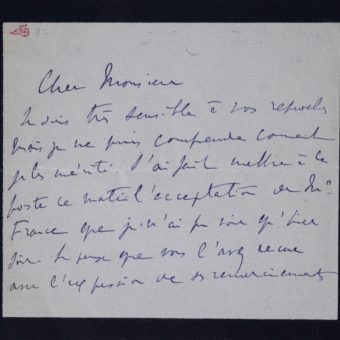 Cher Monsieur
Je suis très sensible à vos reproches
mais je ne puis comprendre comment
je les mérite. J'ai fait mettre à la
poste ce matin l'acceptation de Mr
France que je n'ai pu voir qu'hier
soir. Je pense que vous l'avez reçue
avec l'expression de ses remerciements